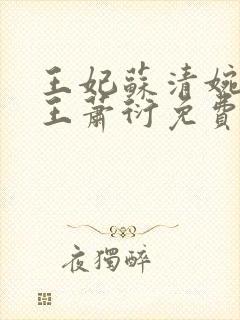 王妃蘇清婉
王蕭衍免費
夜獨醉